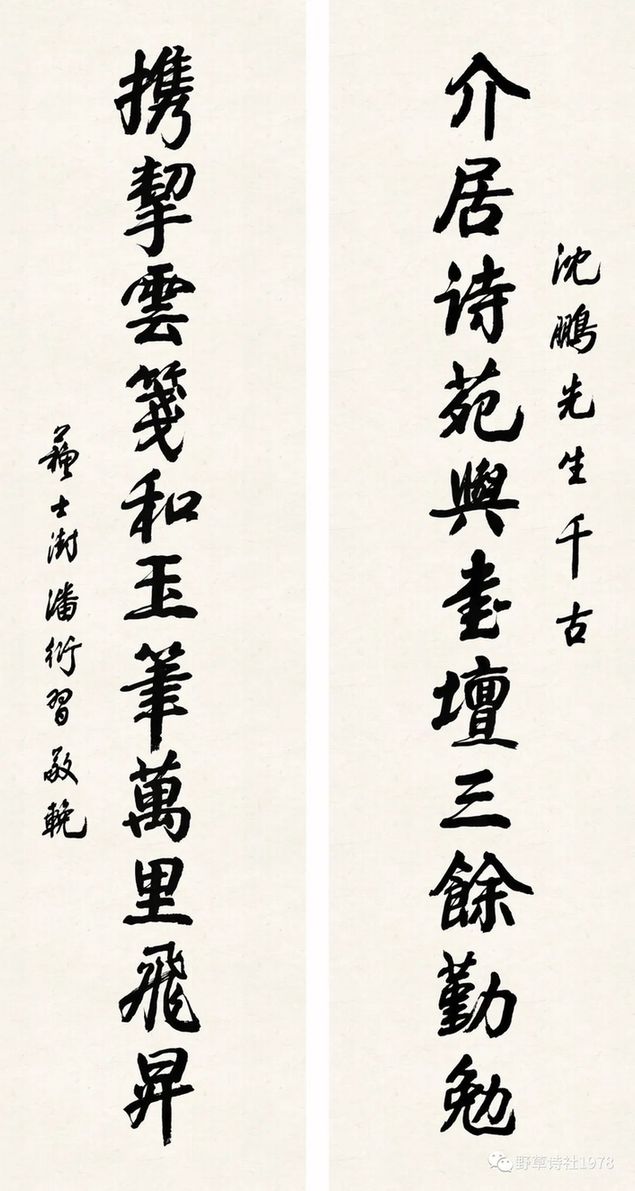 沈鹏先生千古
介居诗苑與書壇三餘勤勉
携挈雲箋和玉筆萬里飛昇
蘇士澍潘衍習敬輓
野草诗社1978